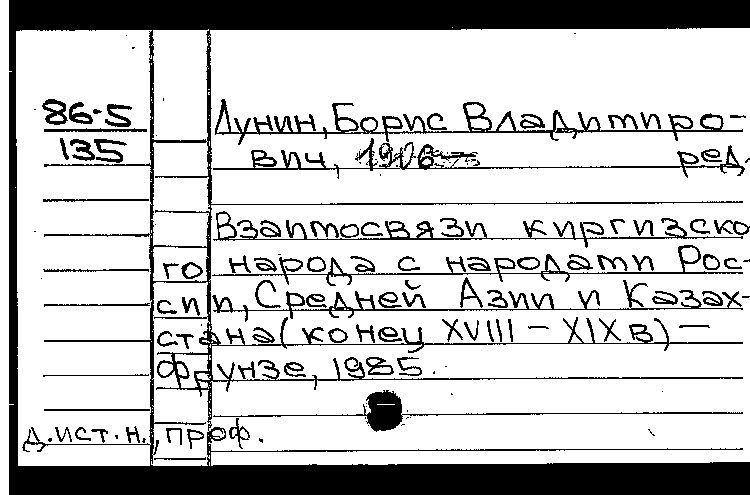 86-5
135
Лунин, Борис Владимиро-
вич, 1906- ред.
Взаимосвязи киргизско
го народа с народами Рос-
сии, Средней Азии и Казах-
стана (конец XVIII - XIX в) -
Фрунзе, 1985.
д.ист.н., проф.